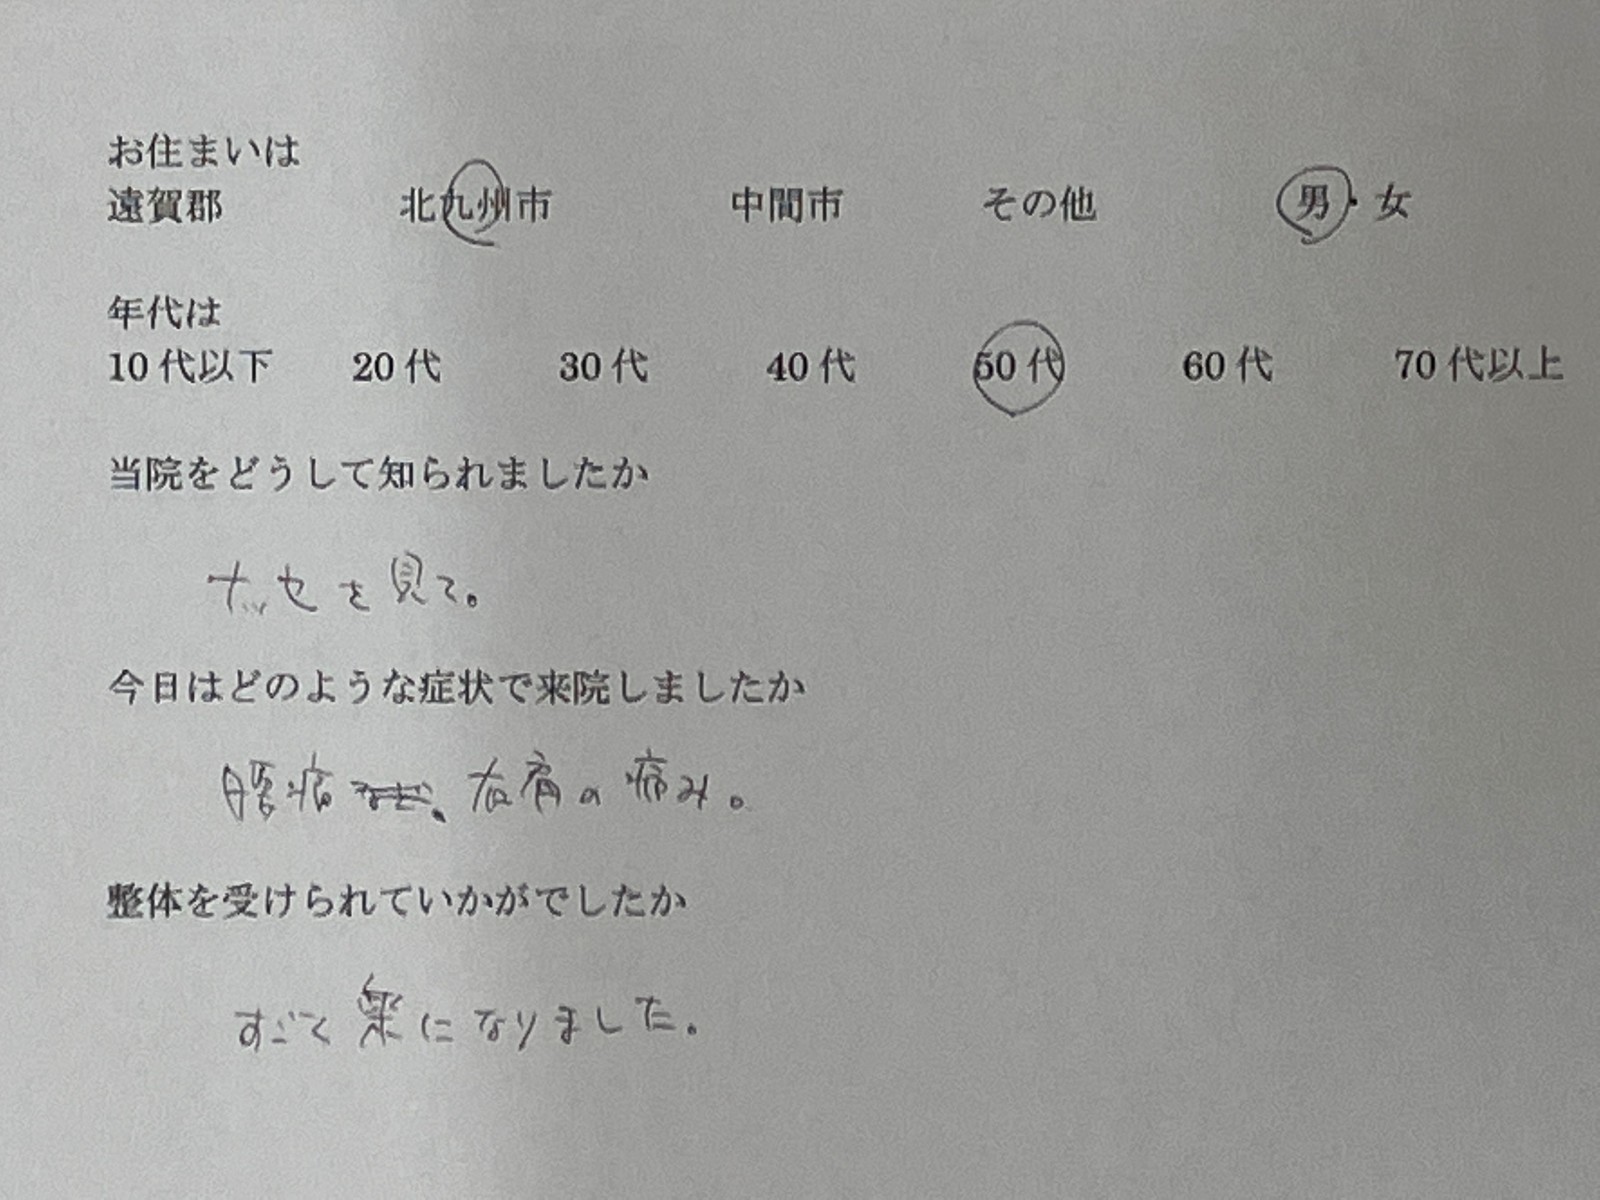 お住まいは
遠賀郡 北九州市 中間市 その他 男・女
年代は
10代以下 20代 30代 40代 50代 60代 70代以上
当院をどうして知られましたか
ナッセを見て。
今日はどのような症状で来院しましたか
腰痛、右肩の痛み。
整体を受けられていかがでしたか
すごく楽になりました。